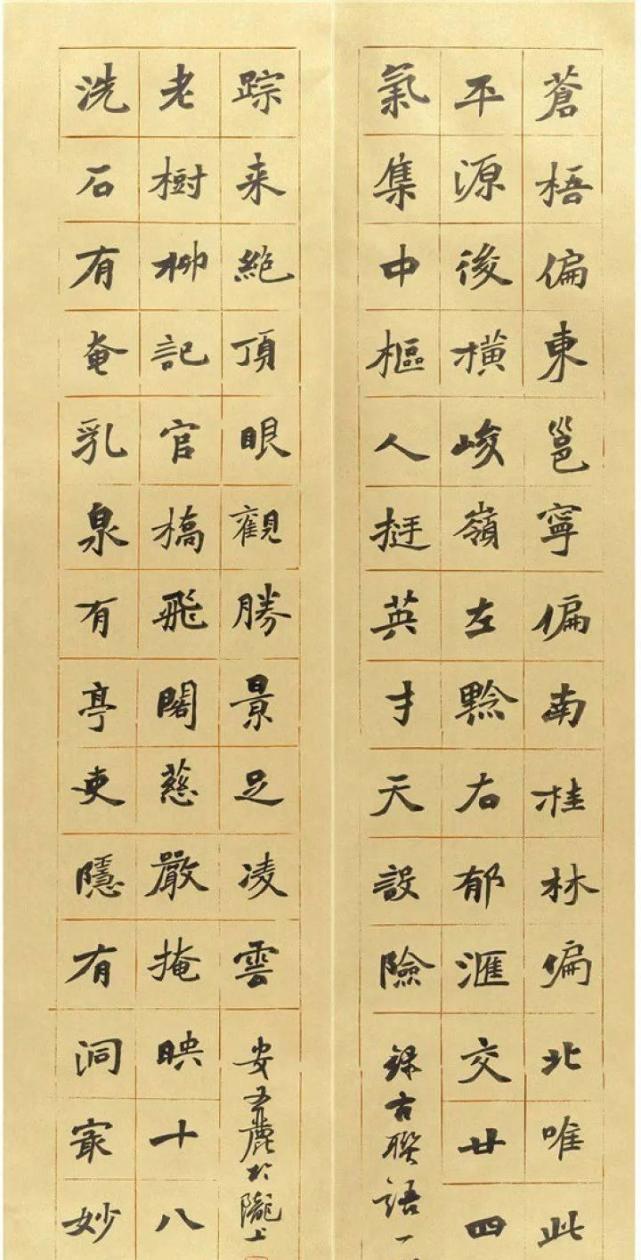 蒼梧偏東邕寧偏南桂林偏北唯此
平源後横峻嶺左黔右郁滙交廿四
氣集中樞人挺英才天設險
録古聯語一
洗石有奄乳泉有亭吏隱有洞冣妙
老樹柳記官橋飛閣慈嚴掩映十八
踪来絕頂眼觀勝景足凌雲
安文麗於隴上